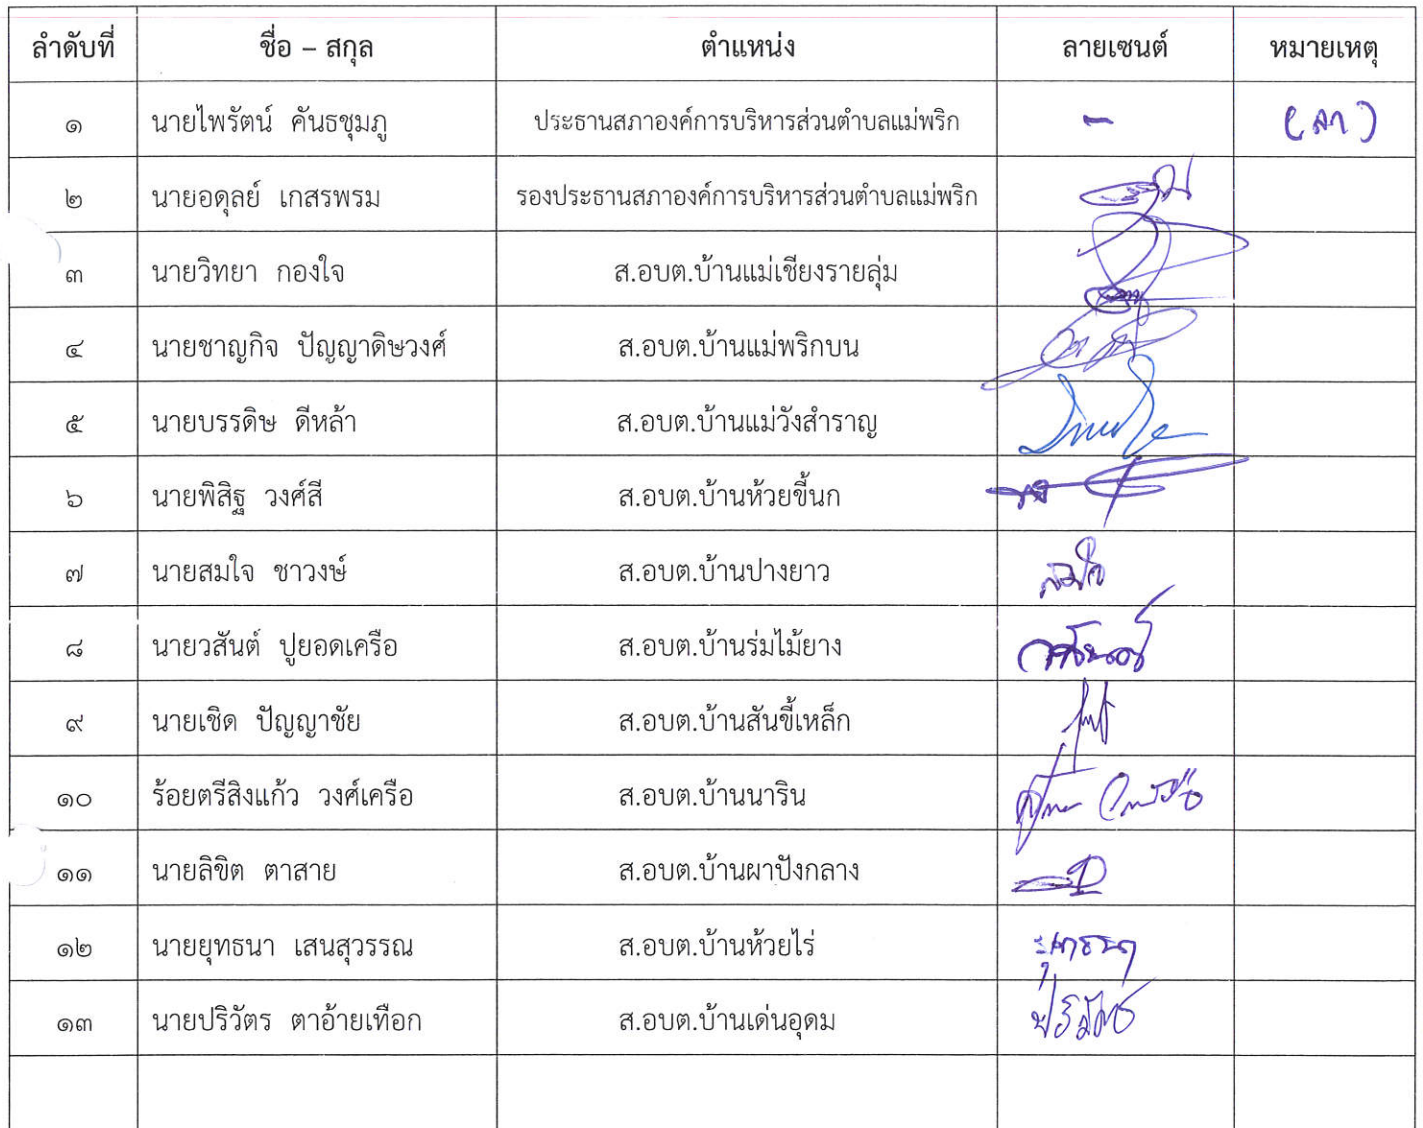 ลำดับที่ ชื่อ – สกุล ตำแหน่ง ลายเซนต์ หมายเหตุ
๑ นายไพรัตน์ คันธชุมภู ประธานสภาองค์การบริหารส่วนตำบลแม่พริก - (ลา)
๒ นายอดุลย์ เกสรพรม รองประธานสภาองค์การบริหารส่วนตำบลแม่พริก
๓ นายวิทยา กองใจ ส.อบต.บ้านแม่เชียงรายลุ่ม
๔ นายชาญกิจ ปัญญาดิษวงศ์ ส.อบต.บ้านแม่พริกบน
๕ นายบรรดิษ ดีหล้า ส.อบต.บ้านแม่วังสำราญ
๖ นายพิสิฐ วงศ์สี ส.อบต.บ้านห้วยขี้นก
๗ นายสมใจ ชาวงษ์ ส.อบต.บ้านปางยาว สมใจ
๘ นายวสันต์ ปูยอดเครือ ส.อบต.บ้านร่มไม้ยาง
๙ นายเชิด ปัญญาชัย ส.อบต.บ้านสันขี้เหล็ก
๑๐ ร้อยตรีสิงแก้ว วงศ์เครือ ส.อบต.บ้านนาริน
๑๑ นายลิขิต ตาสาย ส.อบต.บ้านผาปังกลาง
๑๒ นายยุทธนา เสนสุวรรณ ส.อบต.บ้านห้วยไร่ ยุทธนา
๑๓ นายปริวัตร ตาอ้ายเทือก ส.อบต.บ้านเด่นอุดม ปริวัตร